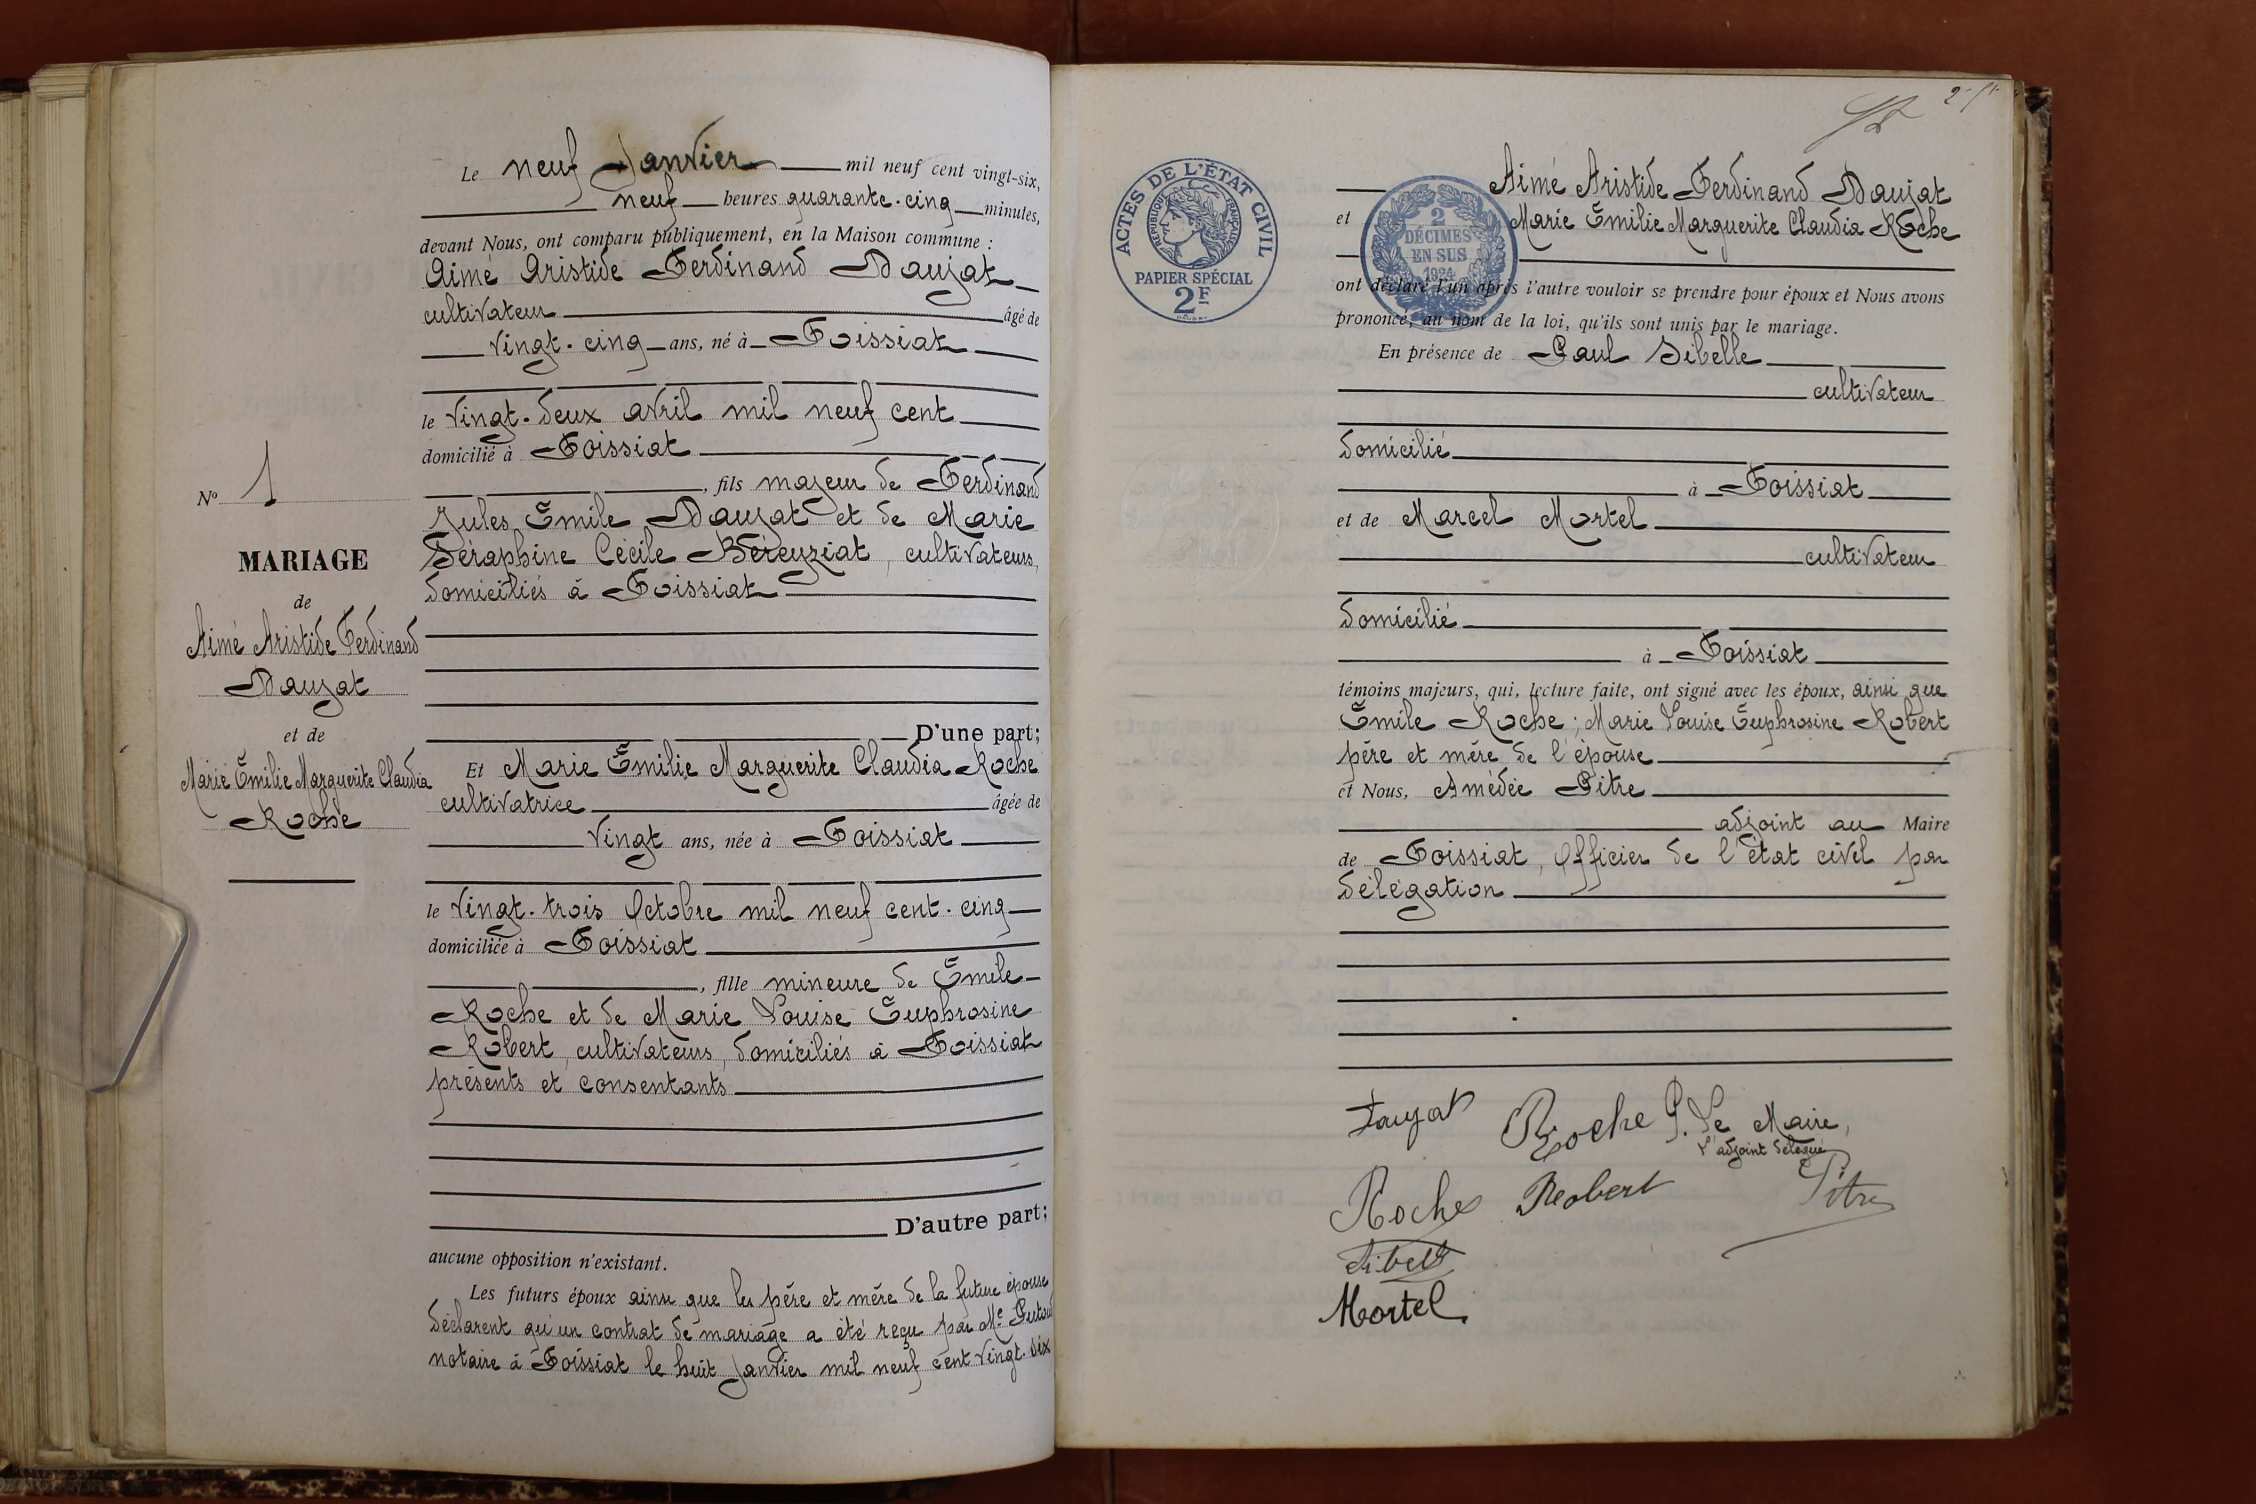 Le neuf Janvier mil neuf cent vingt-six,
neuf heures quarante-cinq minutes,
devant Nous, ont comparu publiquement, en la Maison commune :
Aimé Aristide Ferdinand Daujat
cultivateur âgé de
vingt-cinq ans, né à Foissiat
le vingt-deux avril mil neuf cent
domicilié à Foissiat
, fils majeur de Ferdinand
Jules Émile Daujat et de Marie
Séraphine Cécile Béreyziat, cultivateurs,
domiciliés à Foissiat
D'une part;
Et Marie Émilie Marguerite Claudia Roche
cultivatrice âgée de
vingt ans, née à Foissiat
le vingt-trois Octobre mil neuf cent-cinq
domiciliée à Foissiat
, fille mineure de Émile
Roche et de Marie Louise Euphrosine
Robert, cultivateurs, domiciliés à Foissiat
présents et consentants
D'autre part;
aucune opposition n'existant.
Les futurs époux ainsi que les père et mère de la future épouse
déclarent qu'un contrat de mariage a été reçu par Me
notaire à Foissiat le huit Janvier mil neuf cent vingt-six
No 1
MARIAGE
de
Aimé Aristide Ferdinand
Daujat
et de
Marie Émilie Marguerite Claudia
Roche
ACTES DE L'ÉTAT CIVIL
RÉPUBLIQUE FRANÇAISE
PAPIER SPÉCIAL
2F
2
DÉCIMES
EN SUS
1924
Aimé Aristide Ferdinand Daujat
et Marie Émilie Marguerite Claudia Roche
ont déclaré l'un après l'autre vouloir se prendre pour époux et Nous avons
prononcé, au nom de la loi, qu'ils sont unis par le mariage.
En présence de Paul Sibelle
cultivateur
domicilié
à Foissiat
et de Marcel Mortel
cultivateur
domicilié
à Foissiat
témoins majeurs, qui, lecture faite, ont signé avec les époux, ainsi que
Émile Roche; Marie Louise Euphrosine Robert
père et mère de l'épouse
et Nous, Amédée Pitre
adjoint au Maire
de Foissiat, Officier de l'état civil par
délégation
Daujat Roche P. Le Maire,
L'adjoint délégué
Roche Robert Pitre
Sibelle
Mortel